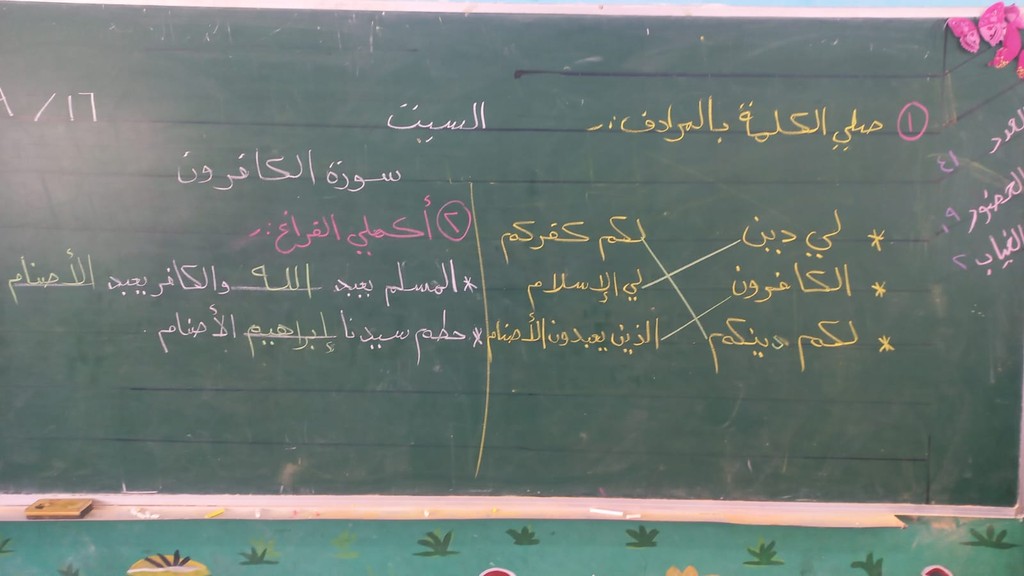 السبت
١٦ / ٨
سورة الكافرون
① صلي الكلمة بالمرادف :-
* لي دين
لكم كفركم
* الكافرون
لي الإسلام
* لكم دينكم
الذين يعبدون الأصنام
② أكملي الفراغ :-
* المسلم يعبد الله والكافر يعبد الأصنام
* حطم سيدنا إبراهيم الأصنام .
العدد ٤١
الحضور ٣٩
الغياب ٢